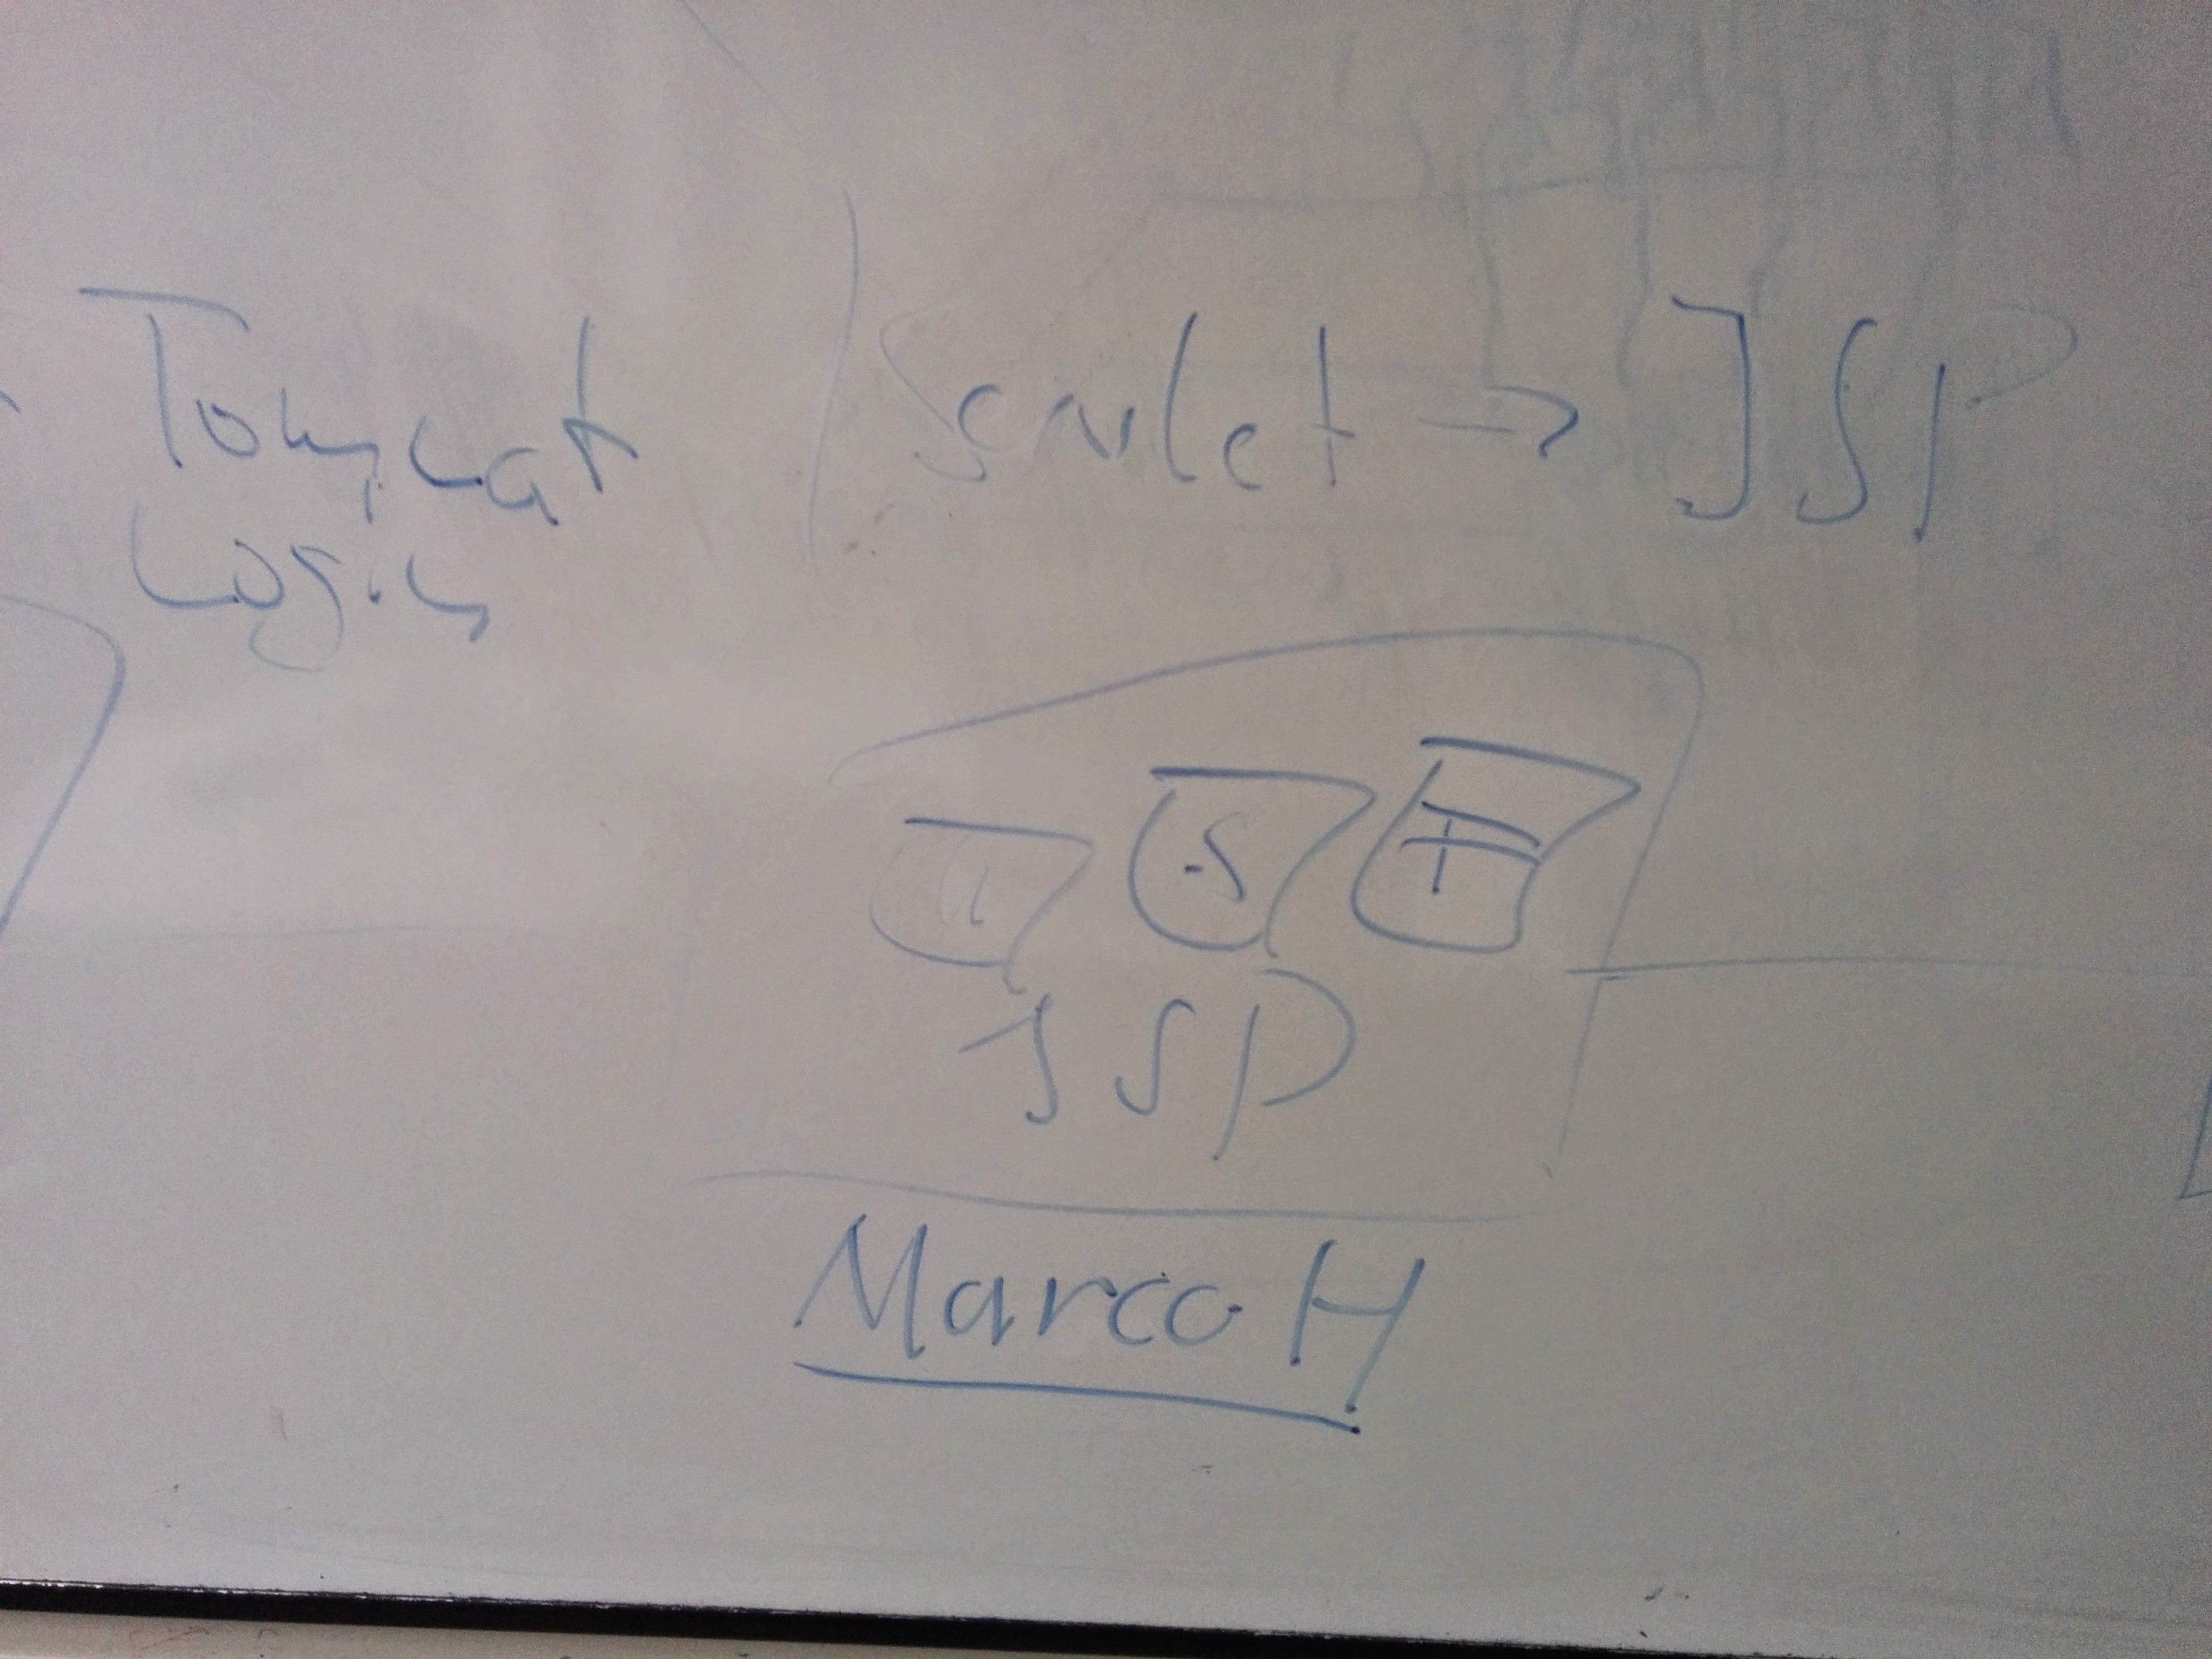 Tomcat
Login
Servlet -> JSP
S
JSP
Marco H